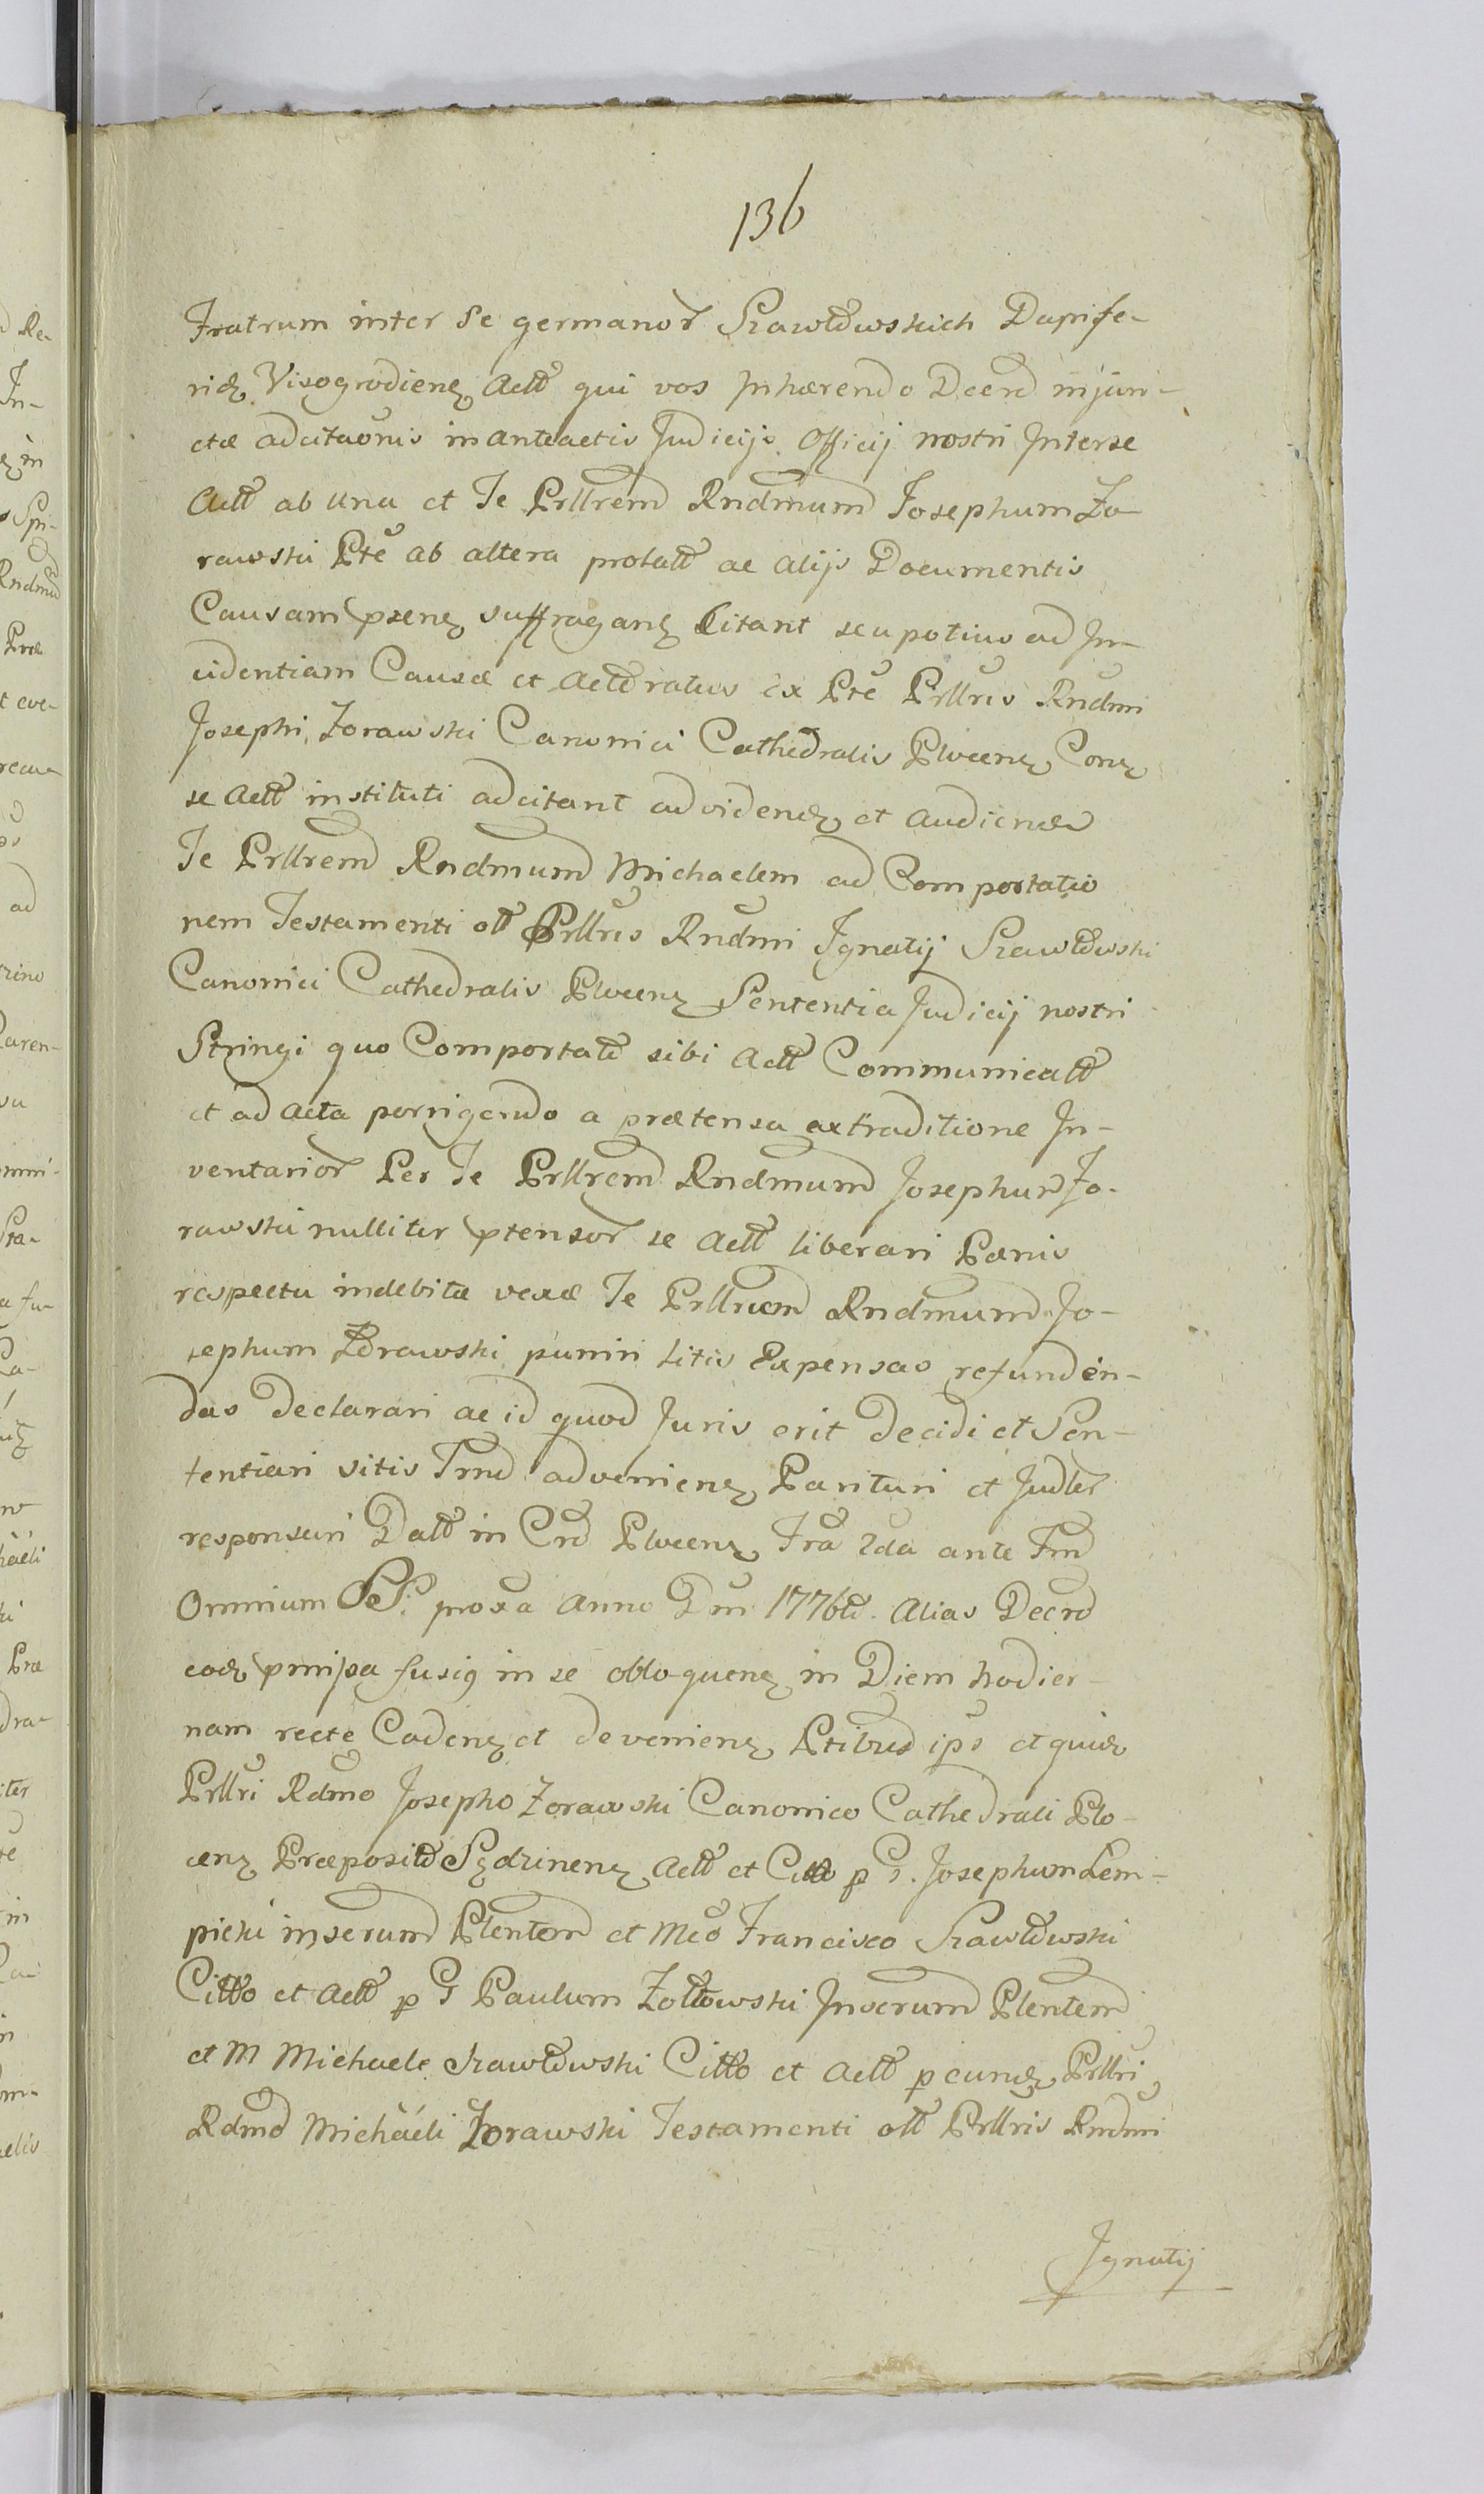 136
Fratrum inter se germanor Szawłowskich Dapife-
rid Visogrodienz Actt qui vos Inhærendo Decrd injun-
ctæ adcitaonis in anteactis Judicijs Officij nostri Inter se
Actt ab una et Te Prllrem Rndmum Josephum Zo-
rawski Pte ab altera prolatt ac alijs Documentis
Causam psenz suffraganz Citant seu potius ad In-
cidentiam Causæ et Acttoratus ex Pte Prllris Rndmi
Josephi Zorawski Canonici Cathedralis Plocenz Conz
se Actt instituti adcitant ad videndz et audiend
Te Prllrem Rndmum Michaelem ad Comportatio
nem Testamenti ott Prllris Rndmi Ignatij Szawłowski
Canonici Cathedralis Plocenz Sententia Judicij nostri
Stringi quo Comportatt sibi Actt Communicatt
et ad acta porrigendo a prætensa extraditione In-
ventarior Per Te Prllrem Rndmum Josephum Zo-
rawski nulliter ptensor se Actt liberari Pænis
respectu indebitæ vexæ Te Prllrem Rndmum Jo-
sephum Zorawski puniri litis Expensas refunden-
das Declarari ac id quod Juris erit Decidi et Sen-
tentiari sitis Trno advenienz Parituri et Judler
responsuri Datt in Crd Plocenz Fra 2da ante Fm
Omnium SS: proxa Anno Dni 1776to. Alias Decro
eod pmissa fusiq in se obloquenz in Diem hodier-
nam recte Cadenz et devenienz Ptibus ips et quid
Prllri Rdmo Josepho Zorawski Canonico Cathedrali Plo-
cenz Præposito Sędzinenz Actt et Citto p G. Josephum Lem-
picki inserum Plentem et Mco Francisco Szawłowski
Citto et Actt p G Paulum Zołtowski Inserum Plentem
et M Michaele Szawłowski Citto et Actt p eundz Prllri
Rdmo Michaeli Zorawski Testamenti ott Prllris Rndmi
Ignatij